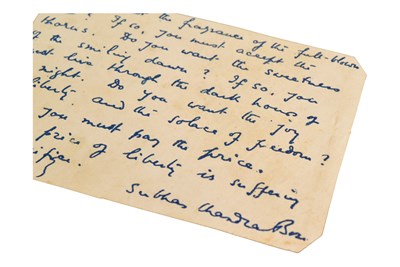 the fragrance of the full-blown
? If so, you must accept the
thorns. Do you want the sweetness
of the smiling dawn? If so, you
must live through the dark hours of
night. Do you want the joy
liberty and the solace of freedom?
you must pay the price.
price of liberty is suffering
Subhas Chandra Bose